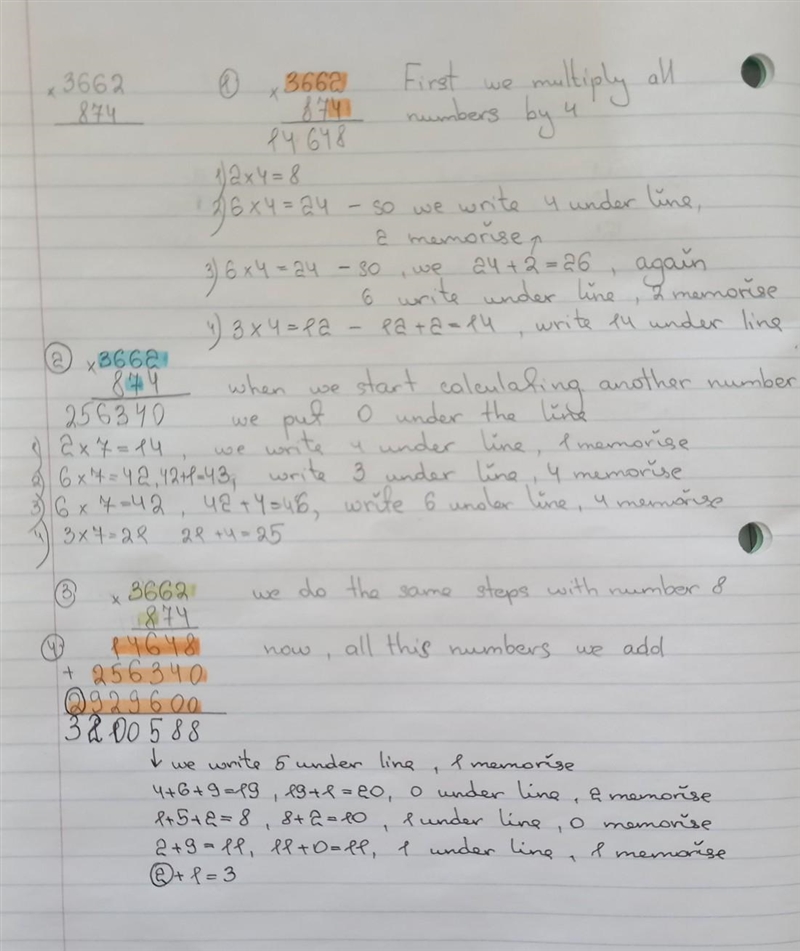 × 3662
874
① × 3662
874
14648
First we multiply all
numbers by 4
1) 2×4=8
2) 6×4=24 - so we write 4 under line,
2 memorise,
3) 6×4=24 - so, we 24+2=26, again
6 write under line, 2 memorise
4) 3×4=12 - 12+2=14, write 14 under line
② × 3662
874
256340
when we start calculating another number
we put 0 under the line
1) 2×7=14, we write 4 under line, 1 memorise
2) 6×7=42, 42+1=43, write 3 under line, 4 memorise
3) 6×7=42, 42+4=46, write 6 under line, 4 memorise
4) 3×7=21 21+4=25
③ × 3662
874
we do the same steps with number 8
④ 14648
+ 256340
2929600
3200588
now, all this numbers we add
↓ we write 5 under line, 1 memorise
4+6+9=19, 19+1=20, 0 under line, 2 memorise
1+5+2=8, 8+2=10, 1 under line, 0 memorise
2+9=11, 11+0=11, 1 under line, 1 memorise
②+1=3